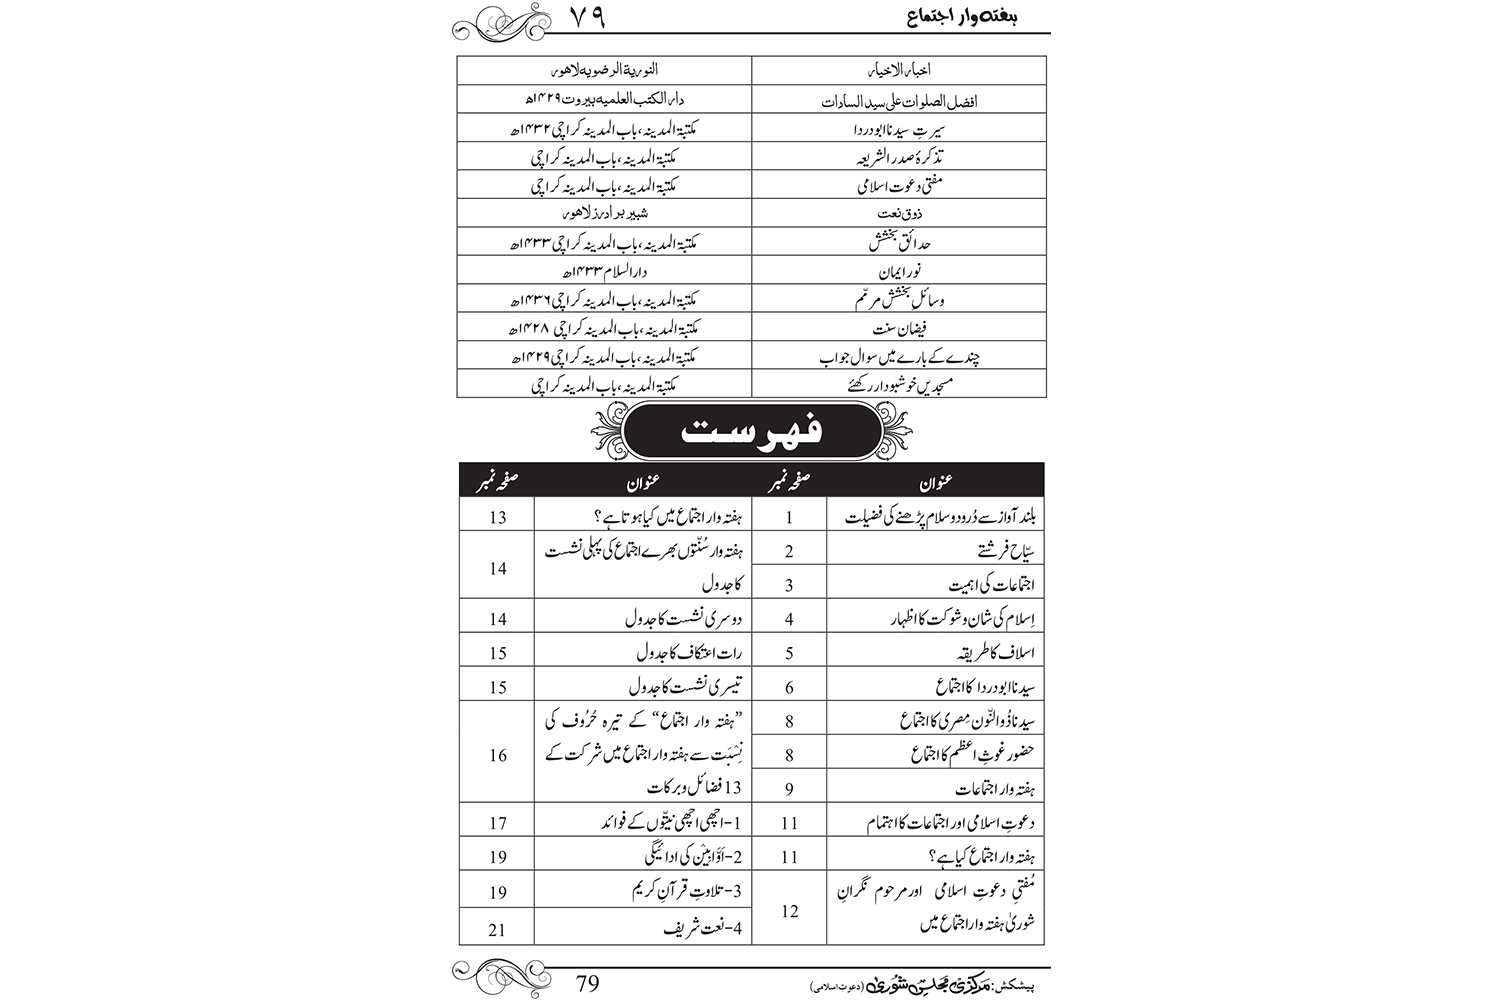 ہفتہ وار اجتماع ۷۹
اخبار الاخیار النوریۃ الرضویہ لاھور
افضل الصلوات علی سید السادات دار الکتب العلمیہ بیروت ۱۴۲۹ھ
سیرتِ سیدنا ابو دردا مکتبۃ المدینہ، باب المدینہ کراچی ۱۴۳۲ھ
تذکرۂ صدر الشریعہ مکتبۃ المدینہ، باب المدینہ کراچی
مفتی دعوت اسلامی مکتبۃ المدینہ، باب المدینہ کراچی
ذوق نعت شبیر برادرز لاھور
حدائق بخشش مکتبۃ المدینہ، باب المدینہ کراچی ۱۴۳۳ھ
نور ایمان دار السلام ۱۴۳۳ھ
وسائلِ بخشش مرمّم مکتبۃ المدینہ، باب المدینہ کراچی ۱۴۳۶ھ
فیضان سنت مکتبۃ المدینہ، باب المدینہ کراچی ۱۴۲۸ھ
چندے کے بارے میں سوال جواب مکتبۃ المدینہ، باب المدینہ کراچی ۱۴۲۹ھ
مسجدیں خوشبودار رکھئے مکتبۃ المدینہ، باب المدینہ کراچی
فہرست
عنوان صفحہ نمبر عنوان صفحہ نمبر
بلند آواز سے دُرود و سلام پڑھنے کی فضیلت 1 ہفتہ وار اجتماع میں کیا ہوتا ہے؟ 13
سیّاح فرشتے 2 ہفتہ وار سُنّتوں بھرے اجتماع کی پہلی نشست
اجتماعات کی اہمیت 3 کا جدول 14
اِسلام کی شان و شوکت کا اظہار 4 دوسری نشست کا جدول 14
اسلاف کا طریقہ 5 رات اعتکاف کا جدول 15
سیدنا ابو دردا کا اجتماع 6 تیسری نشست کا جدول 15
سیدنا ذُوالنّون مِصری کا اجتماع 8 ”ہفتہ وار اجتماع“ کے تیرہ حُرُوف کی
حضور غوثِ اعظم کا اجتماع 8 نِسْبَت سے ہفتہ وار اجتماع میں شرکت کے 16
ہفتہ وار اجتماعات 9 13 فضائل و برکات
دعوتِ اسلامی اور اجتماعات کا اہتمام 11 1-اچھی اچھی نیتّوں کے فوائد 17
ہفتہ وار اجتماع کیا ہے؟ 11 2-اَوَّابِیْن کی ادائیگی 19
مُفتیِ دعوتِ اسلامی اور مرحوم نگرانِ 3-تلاوتِ قرآنِ کریم 19
شوریٰ ہفتہ وار اجتماع میں 12 4-نعت شریف 21
پیشکش: مرکزی مجلسِ شوریٰ (دعوتِ اسلامی) 79